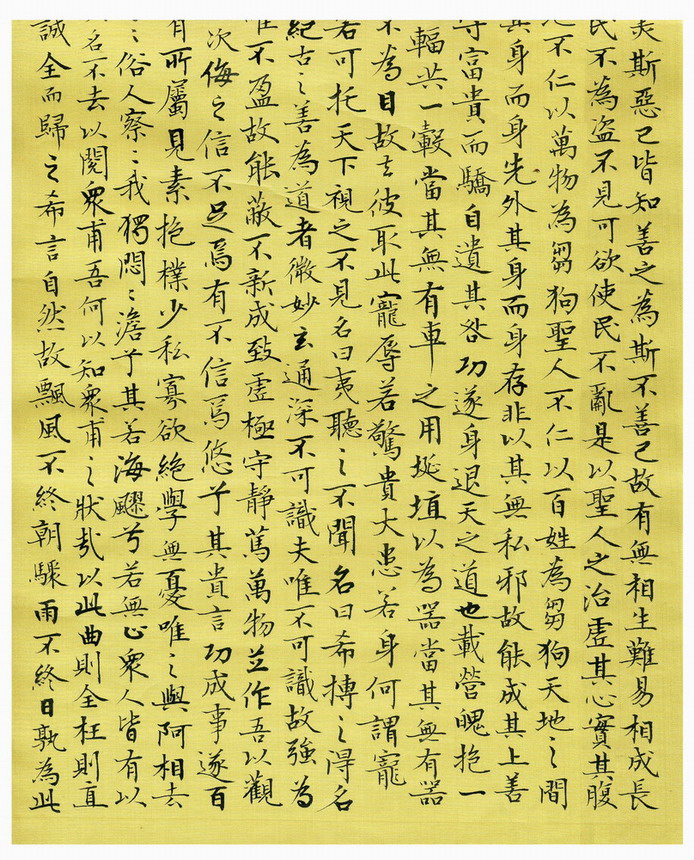 美斯惡已皆知善之為斯不善已故有無相生難易相成長
民不為盜不見可欲使民不亂是以聖人之治虛其心實其腹
地不仁以萬物為芻狗聖人不仁以百姓為芻狗天地之間
其身而身先外其身而身存非以其無私邪故能成其上善
守富貴而驕自遺其咎功遂身退天之道也載營魄抱一
輻共一轂當其無有車之用埏埴以為器當其無有器
不為目故去彼取此寵辱若驚貴大患若身何謂寵
若可托天下視之不見名曰夷聽之不聞名曰希摶之得名
紀古之善為道者微妙玄通深不可識夫唯不可識故強為
唯不盈故能蔽不新成致虛極守靜篤萬物並作吾以觀
次侮之信不足焉有不信焉悠兮其貴言功成事遂百
有所屬見素抱樸少私寡欲絕學無憂唯之與阿相去
〻俗人察〻我獨悶〻澹兮其若海飂兮若無止眾人皆有以
其名不去以閱眾甫吾何以知眾甫之狀哉以此曲則全枉則直
誠全而歸之希言自然故飄風不終朝驟雨不終日孰為此